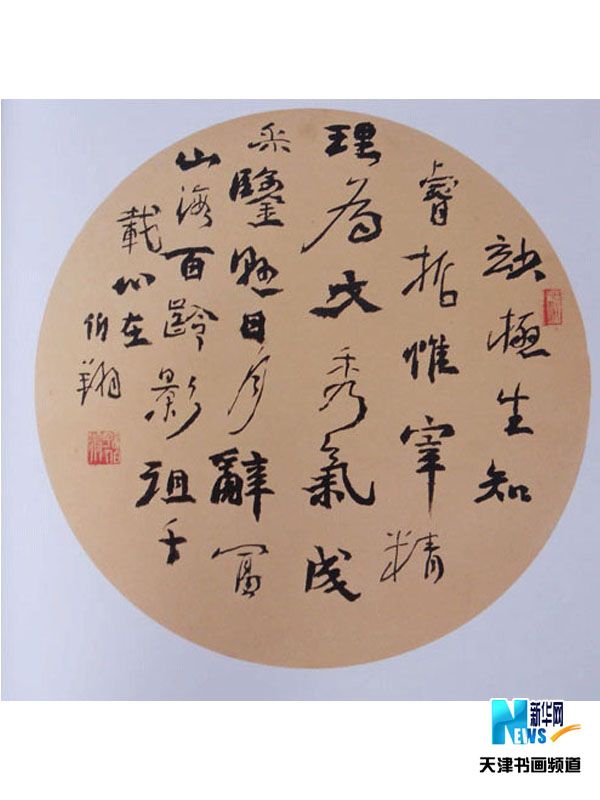 玅極生知
睿哲惟宰精
理為文秀氣成
采鑒懸日月辭冨
山海百齡影徂千
載心在
伯翔
新华网
NEWS
天津书画频道